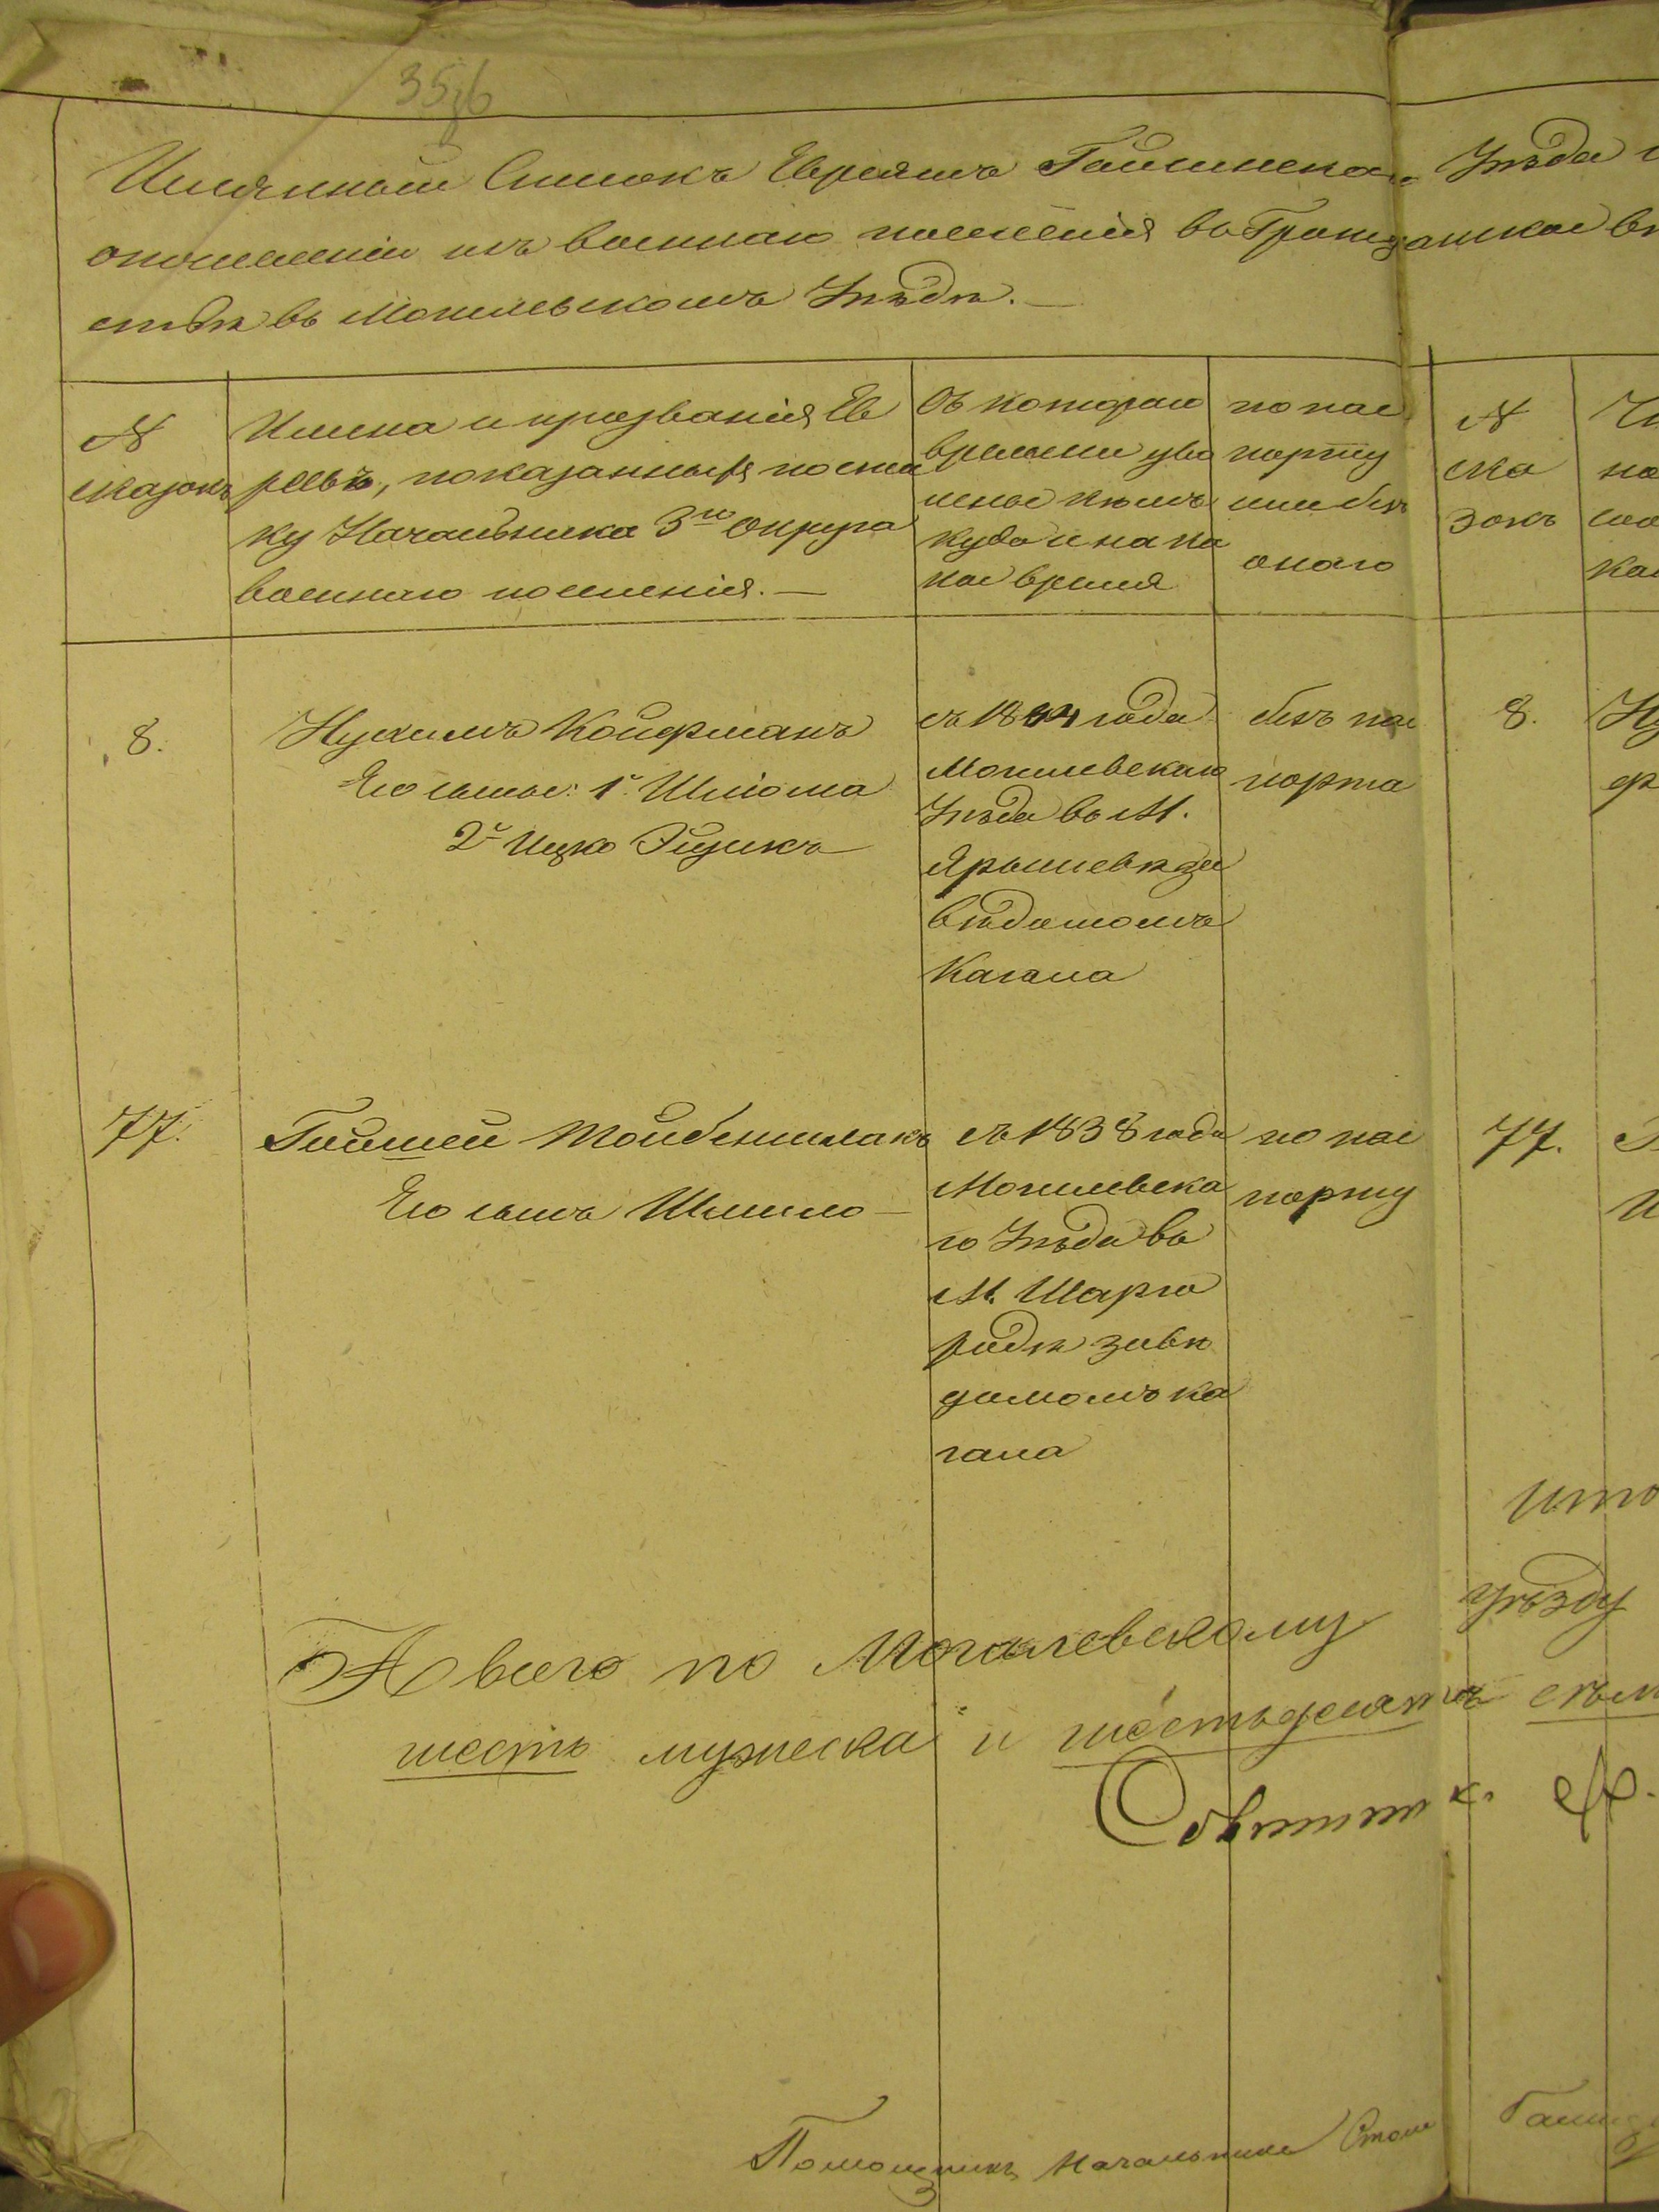 35
Имянный Списокъ Евреямъ Гайсинскаго Уѣзда
отчисленіи изъ военнаго поселенія въ Гражданское
въ Могилевскомъ Уѣздѣ. —
№ сказокъ
Имена и прозванія Ев
реевъ, показанныя по спис
ку Начальника 3го Округа
военнаго поселенія. —
Съ котораго
времени уво
лены кѣмъ
куда и на ка
кое время
по пас
порту
или безъ
онаго
№
ска
зокъ
8.
Нухимъ Койфманъ
Его сынов: 1й Шліома
2й Ицко Эйзикъ
съ 1844 года
Могилевскаго
Уѣзда въ М.
Ярышевѣ за
вѣдомомъ
Кагала
безъ пас
порта
8.
77.
Его сынъ Шмило —
съ 1838 года
Могилевска
го Уѣзда въ
М. Шарго
родѣ завѣ
домомъ ка
гала
по пас
порту
77.
Итого
А всего по Могилевскому уѣзду
шесть мужеска и шестьдесятъ
Совѣтникъ
Помощникъ Начальника Стола